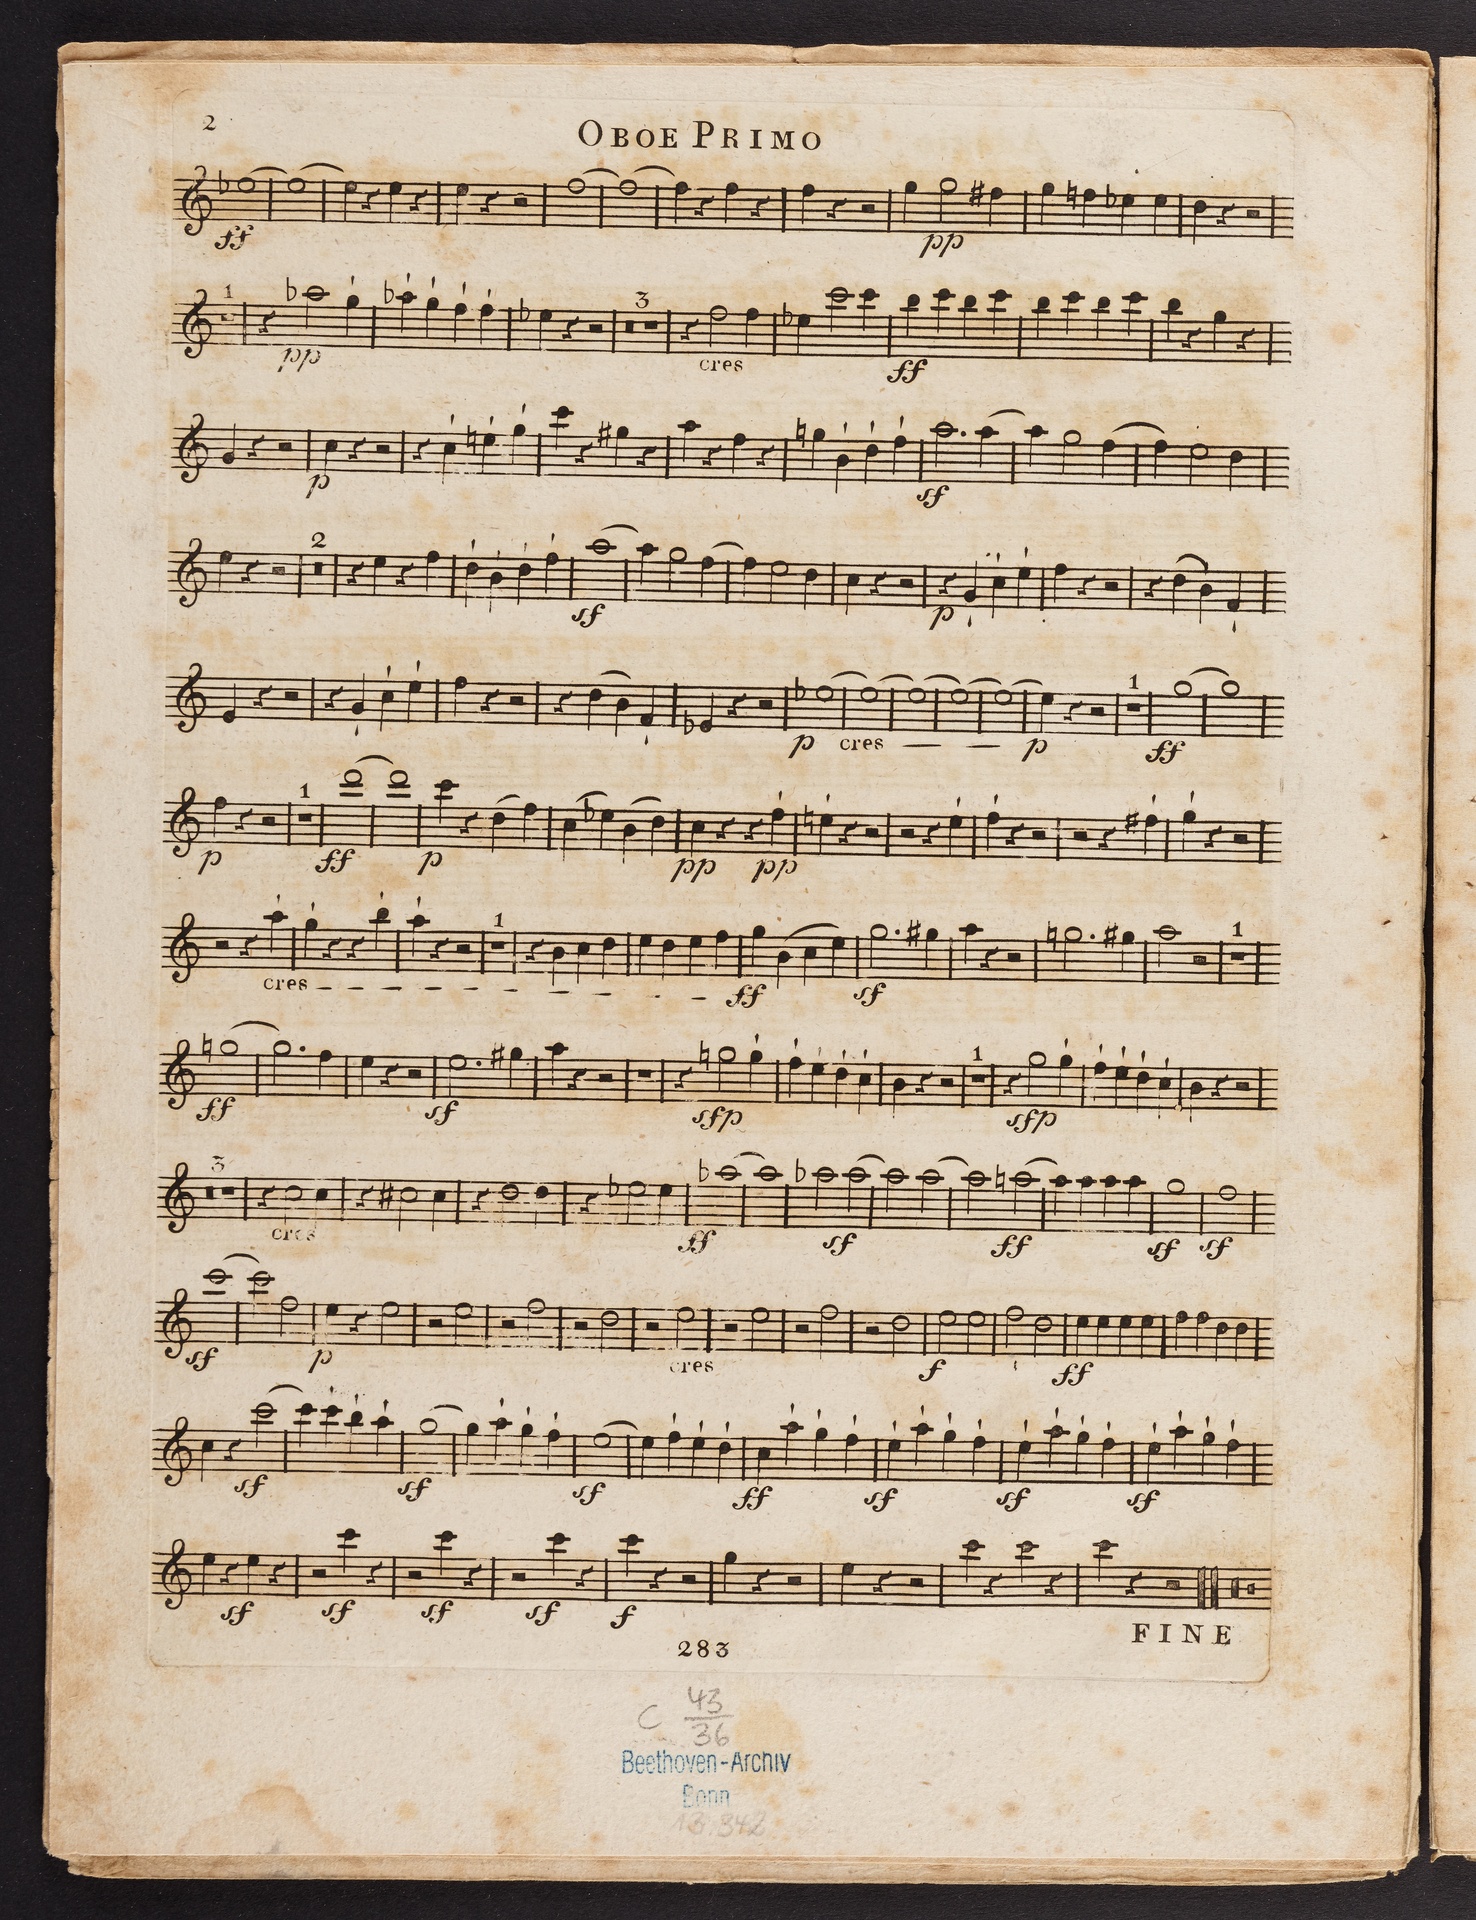 2
OBOE PRIMO
ff pp
1 pp 3 cres ff
p sf
2 sf p
p cres p 1 ff
p 1 ff p pp pp
cres 1 ff sf 1
ff sf sfp 1 sfp
3 cres ff sf ff sf sf
sf p cres f ff
sf sf sf ff sf sf sf
sf sf sf sf f
FINE
283
C 43
36
Beethoven-Archiv
Bonn